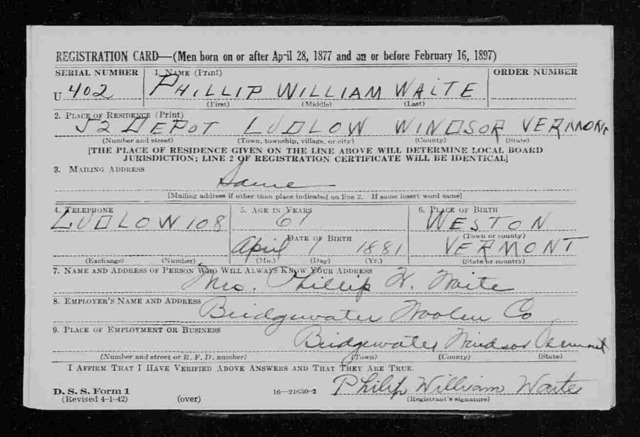 REGISTRATION CARD—(Men born on or after April 28, 1877 and on or before February 16, 1897)
SERIAL NUMBER 1. NAME (Print) ORDER NUMBER
U 402 PHILLIP WILLIAM WAITE
(First) (Middle) (Last)
2. PLACE OF RESIDENCE (Print)
52 DEPOT LUDLOW WINDSOR VERMONT
(Number and street) (Town, township, village, or city) (County) (State)
[THE PLACE OF RESIDENCE GIVEN ON THE LINE ABOVE WILL DETERMINE LOCAL BOARD
JURISDICTION; LINE 2 OF REGISTRATION CERTIFICATE WILL BE IDENTICAL]
3. MAILING ADDRESS
Same
[Mailing address if other than place indicated on line 2. If same insert word same]
4. TELEPHONE 5. AGE IN YEARS 6. PLACE OF BIRTH
LUDLOW 108 61 WESTON
DATE OF BIRTH (Town or county)
April 1 1881 VERMONT
(Exchange) (Number) (Mo.) (Day) (Yr.) (State or country)
7. NAME AND ADDRESS OF PERSON WHO WILL ALWAYS KNOW YOUR ADDRESS
Mrs. Phillip W. Waite
8. EMPLOYER'S NAME AND ADDRESS
Bridgewater Woolen Co
9. PLACE OF EMPLOYMENT OR BUSINESS
Bridgewater Windsor Vermont
(Number and street or R. F. D. number) (Town) (County) (State)
I AFFIRM THAT I HAVE VERIFIED ABOVE ANSWERS AND THAT THEY ARE TRUE.
Philip William Waite
D. S. S. Form 1 16—21630-2 (Registrant's signature)
(Revised 4-1-42) (over)